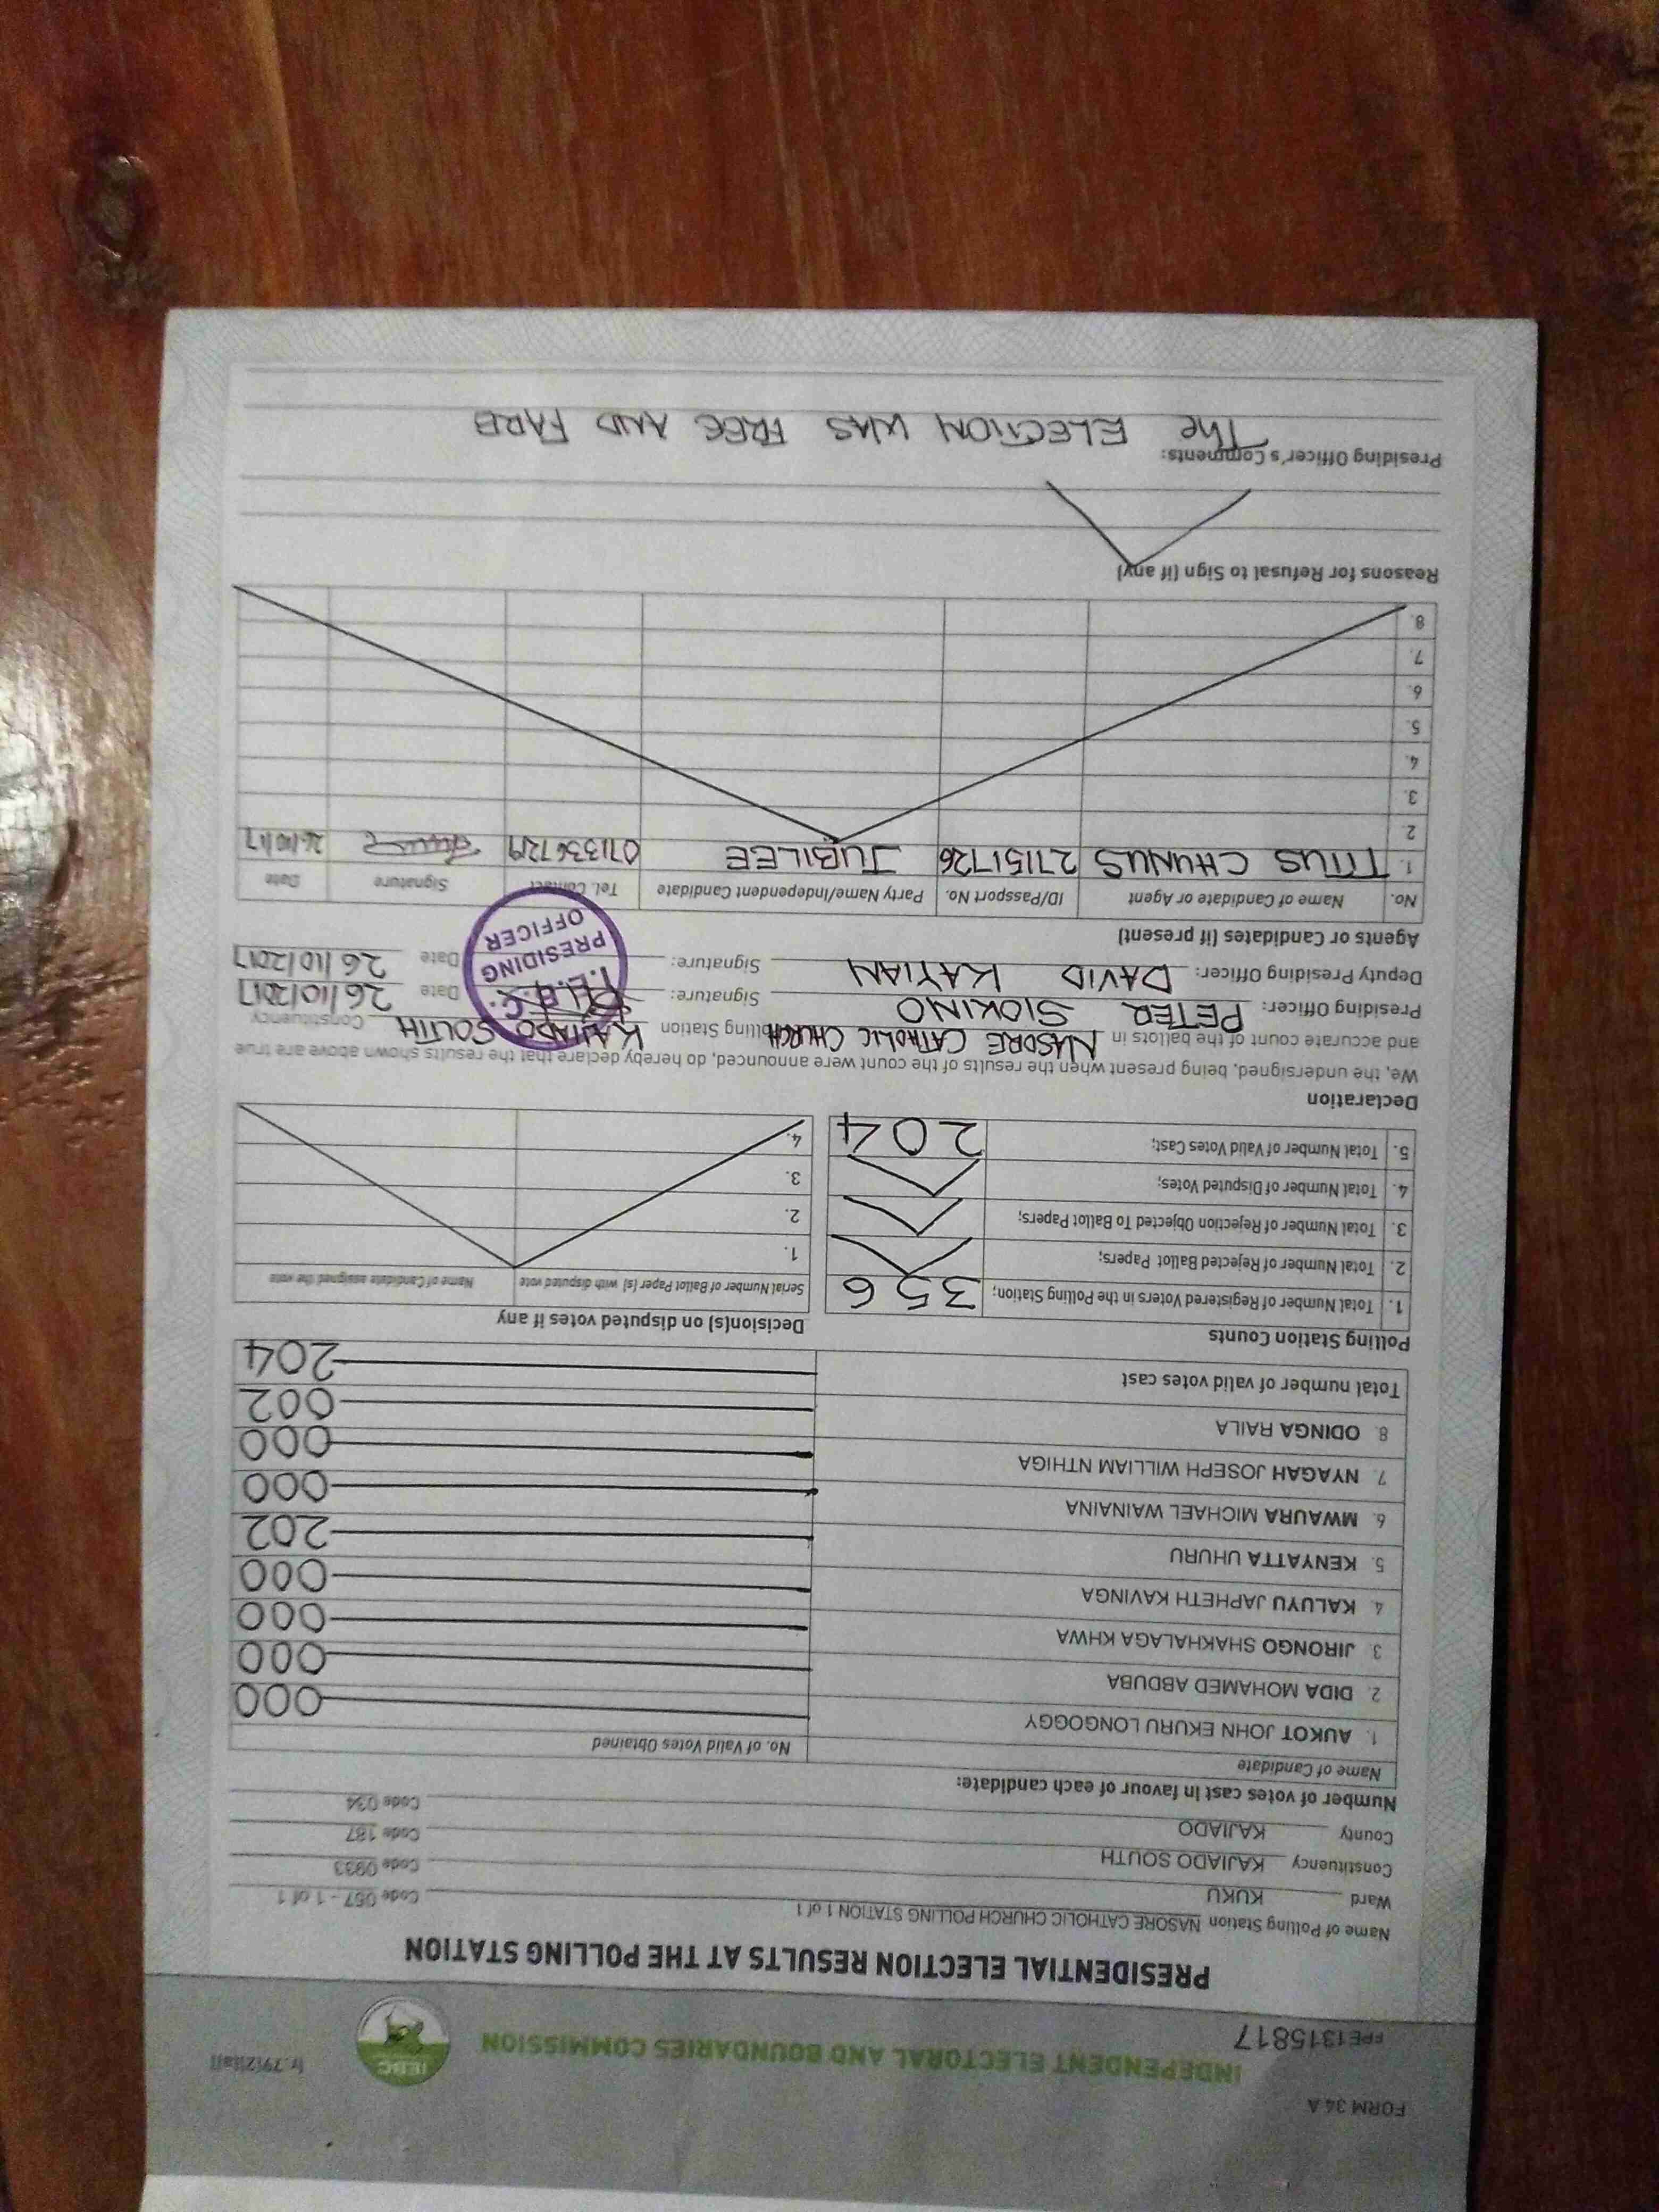 FORM 34 A
(r.79(2)(a))
INDEPENDENT ELECTORAL AND BOUNDARIES COMMISSION
IEBC
FPE1315817
PRESIDENTIAL ELECTION RESULTS AT THE POLLING STATION
Name of Polling Station NASORE CATHOLIC CHURCH POLLING STATION 1 of 1
Code 057 - 1 of 1
Ward KUKU Code 0933
Constituency KAJIADO SOUTH Code 187
County KAJIADO Code 034
Number of votes cast in favour of each candidate:
Name of Candidate No. of Valid Votes Obtained
1. AUKOT JOHN EKURU LONGOGGY 000
2. DIDA MOHAMED ABDUBA 000
3. JIRONGO SHAKHALAGA KHWA 000
4. KALUYU JAPHETH KAVINGA 000
5. KENYATTA UHURU 202
6. MWAURA MICHAEL WAINAINA 000
7. NYAGAH JOSEPH WILLIAM NTHIGA 000
8. ODINGA RAILA 002
Total number of valid votes cast 204
Polling Station Counts
1. Total Number of Registered Voters in the Polling Station; 356
2. Total Number of Rejected Ballot Papers;
3. Total Number of Rejection Objected To Ballot Papers;
4. Total Number of Disputed Votes;
5. Total Number of Valid Votes Cast; 204
Decision(s) on disputed votes if any
Serial Number of Ballot Paper (s) with disputed vote Name of Candidate assigned the vote
1.
2.
3.
4.
Declaration
We, the undersigned, being present when the results of the count were announced, do hereby declare that the results shown above are true
and accurate count of the ballots in NASORE CATHOLIC CHURCH Polling Station KAJIADO SOUTH Constituency
Presiding Officer: PETER SIOKINO Signature: Date 26/10/2017
Deputy Presiding Officer: DAVID KAYIAN Signature: Date 26/10/2017
I.E.B.C.
PRESIDING
OFFICER
Agents or Candidates (if present)
No. Name of Candidate or Agent ID/Passport No. Party Name/Independent Candidate Tel. Contact Signature Date
1. TITUS CHUNUS 27151726 JUBILEE 0713367219 26/10/17
2
3.
4.
5.
6.
7.
8
Reasons for Refusal to Sign (if any)
Presiding Officer's Comments:
The ELECTION WAS FREE AND FARE